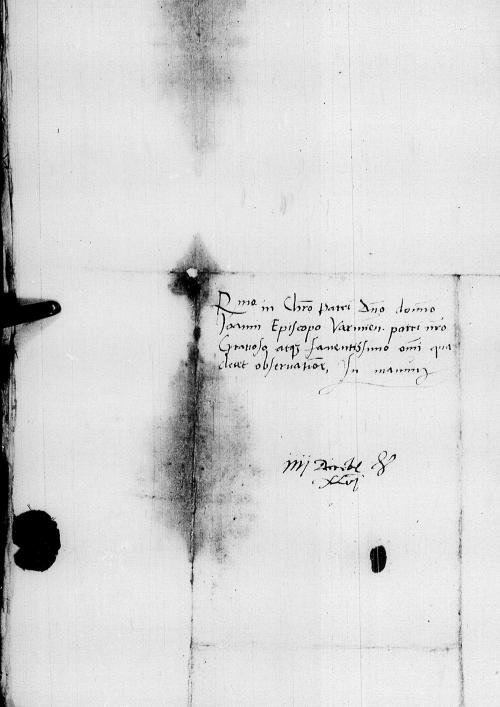 Rmo in Chro patri Dno domino
Joanni Episcopo Varmien. patri nro
Gratioso atq3 faventissimo omi qua
decet observatioe, In manus
iiij Decēbr
XLvi